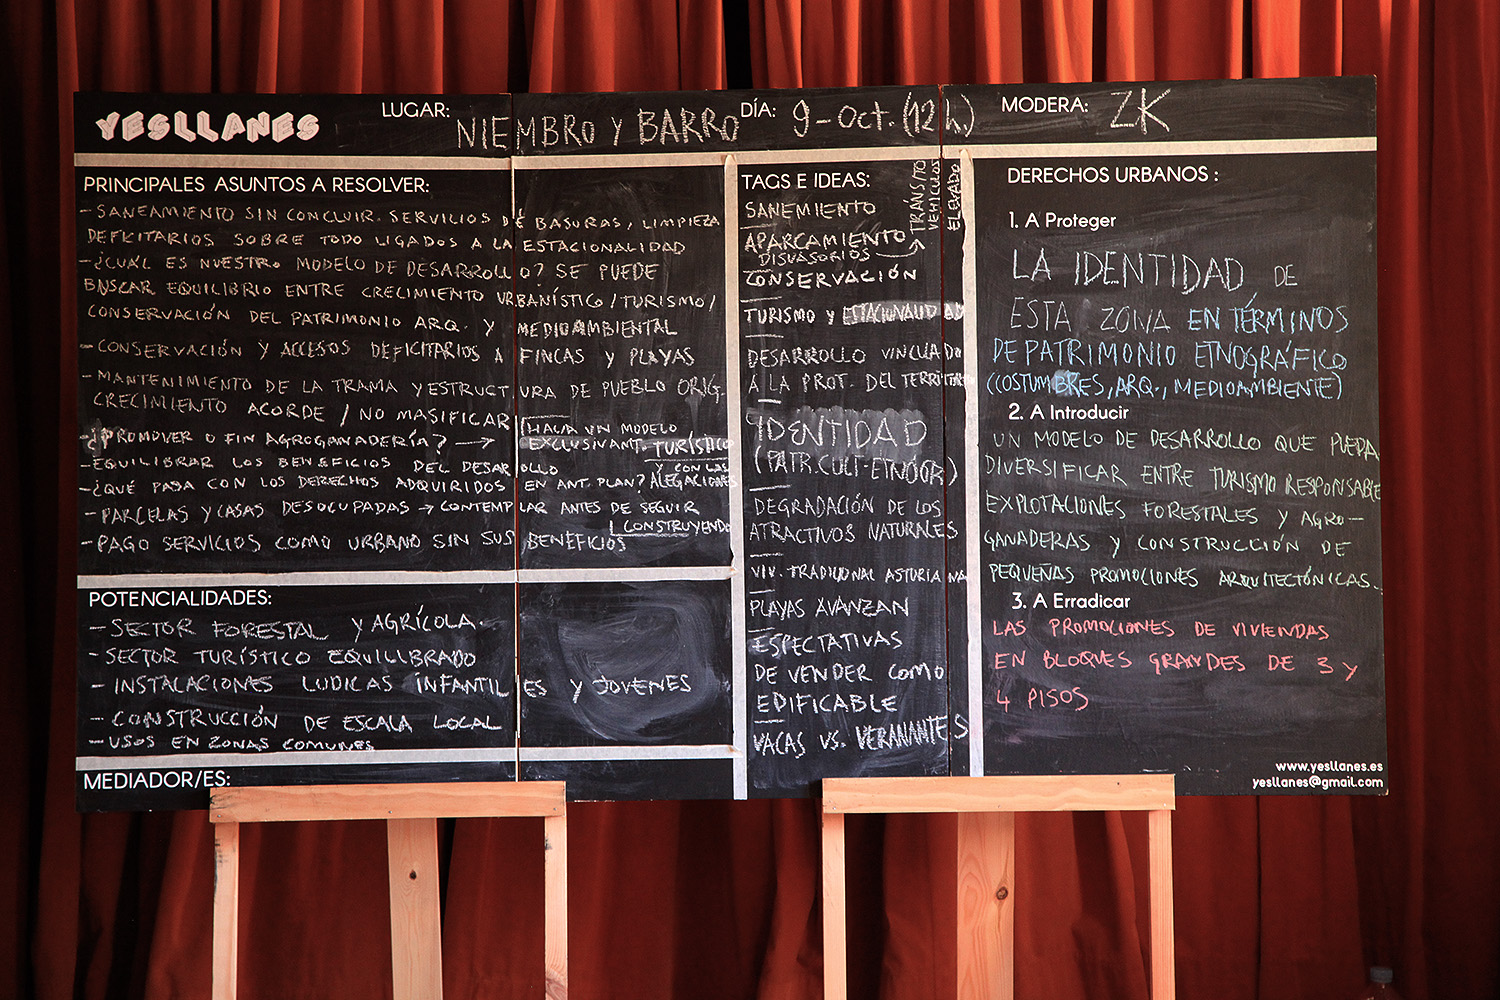 YESLLANES
LUGAR: NIEMBRO Y BARRO
DÍA: 9-Oct. (12 h.)
MODERA: ZK
PRINCIPALES ASUNTOS A RESOLVER:
- SANEAMIENTO SIN CONCLUIR. SERVICIOS DE BASURAS, LIMPIEZA
DEFICITARIOS SOBRE TODO LIGADOS A LA ESTACIONALIDAD
- ¿CUÁL ES NUESTRO MODELO DE DESARROLLO? SE PUEDE
BUSCAR EQUILIBRIO ENTRE CRECIMIENTO URBANÍSTICO/TURISMO/
CONSERVACIÓN DEL PATRIMONIO ARQ. Y MEDIOAMBIENTAL
- CONSERVACIÓN Y ACCESOS DEFICITARIOS A FINCAS Y PLAYAS
- MANTENIMIENTO DE LA TRAMA Y ESTRUCTURA DE PUEBLO ORIG.
CRECIMIENTO ACORDE / NO MASIFICAR
- ¿PROMOVER O FIN AGROGANADERÍA? → HACIA UN MODELO
EXCLUSIVAMT. TURÍSTICO
- EQUILIBRAR LOS BENEFICIOS DEL DESARROLLO
- ¿QUÉ PASA CON LOS DERECHOS ADQUIRIDOS EN ANT. PLAN? Y CON LAS
ALEGACIONES
- PARCELAS Y CASAS DESOCUPADAS → CONTEMPLAR ANTES DE SEGUIR
CONSTRUYENDO
- PAGO SERVICIOS COMO URBANO SIN SUS BENEFICIOS
POTENCIALIDADES:
- SECTOR FORESTAL Y AGRÍCOLA.
- SECTOR TURÍSTICO EQUILIBRADO
- INSTALACIONES LUDICAS INFANTILES Y JOVENES
- CONSTRUCCIÓN DE ESCALA LOCAL
- USOS EN ZONAS COMUNES
MEDIADOR/ES:
TAGS E IDEAS:
SANEMIENTO
APARCAMIENTO
DISUASORIOS →
TRÁNSITO
VEHICULOS
ELEVADO
CONSERVACIÓN
TURISMO Y ESTACIONALIDAD
DESARROLLO VINCULADO
A LA PROT. DEL TERRITORIO
IDENTIDAD
(PATR. CULT-ETNOGR)
DEGRADACIÓN DE LOS
ATRACTIVOS NATURALES
VIV. TRADICIONAL ASTURIANA
PLAYAS AVANZAN
ESPECTATIVAS
DE VENDER COMO
EDIFICABLE
VACAS VS. VERANANTES
DERECHOS URBANOS :
1. A Proteger
LA IDENTIDAD DE
ESTA ZONA EN TÉRMINOS
DE PATRIMONIO ETNOGRÁFICO
(COSTUMBRES, ARQ., MEDIOAMBIENTE)
2. A Introducir
UN MODELO DE DESARROLLO QUE PUEDA
DIVERSIFICAR ENTRE TURISMO RESPONSABLE
EXPLOTACIONES FORESTALES Y AGRO-
GANADERAS Y CONSTRUCCIÓN DE
PEQUEÑAS PROMOCIONES ARQUITECTÓNICAS.
3. A Erradicar
LAS PROMOCIONES DE VIVIENDAS
EN BLOQUES GRANDES DE 3 Y
4 PISOS
www.yesllanes.es
yesllanes@gmail.com